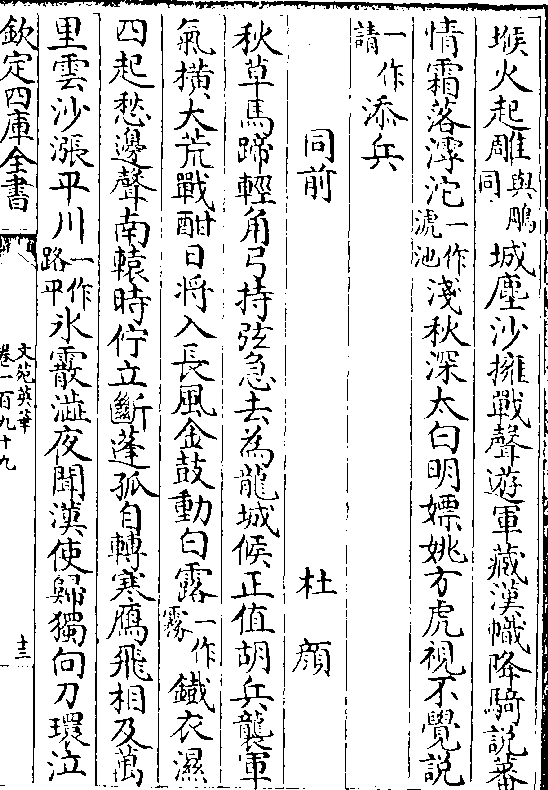 堠火起雕與鵰同城塵沙擁戰聲遊軍藏漢幟降騎說蕃
情霜落滹沱一作滹池淺秋深太白明嫖姚方虎視不覺說
一作請添兵
同前　杜頠
秋草馬蹄輕角弓持弦急去為龍城候正值胡兵襲軍
氣橫大荒戰酣日將入長風金鼓動白露一作霧鐵衣濕
四起愁邊聲南轅時佇立斷蓬孤自轉寒鴈飛相及萬
里雲沙漲平川一作路平氷霰澁夜聞漢使歸獨向刀環泣
欽定四庫全書
文苑英華
卷一百九十九
十三